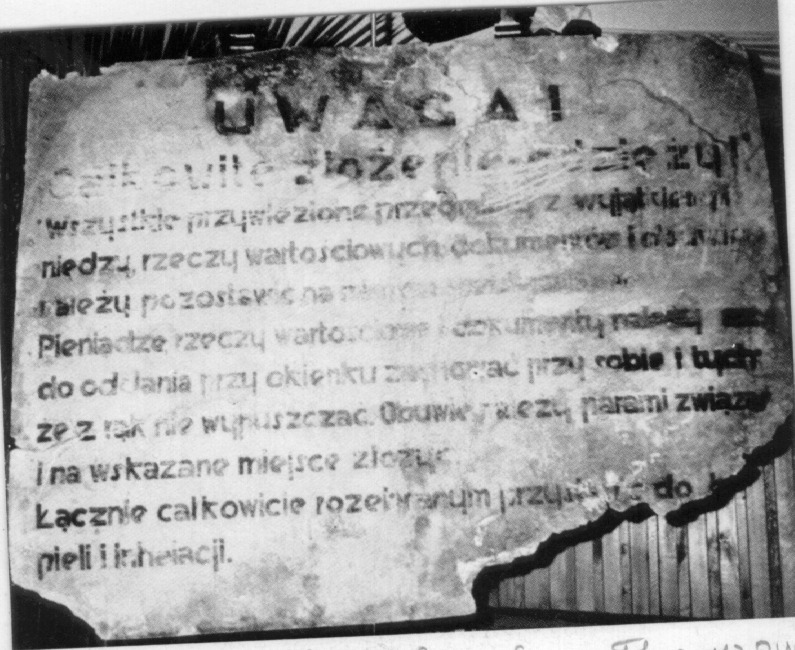 UWAGA!
Całkowite złożenie odzieży!
Wszystkie przywiezione przedmioty z wyjątkiem
niędzy, rzeczy wartościowych dokumentów i obuwia
należy pozostawić na
Pieniądze, rzeczy wartościowe i dokumenty należy
do oddania przy okienku zachować przy sobie i tych
że z rąk nie wypuszczać. Obuwie należy parami związać
i na wskazane miejsce złożyć.
Łącznie całkowicie rozebranym do
pieli i inhalacji.